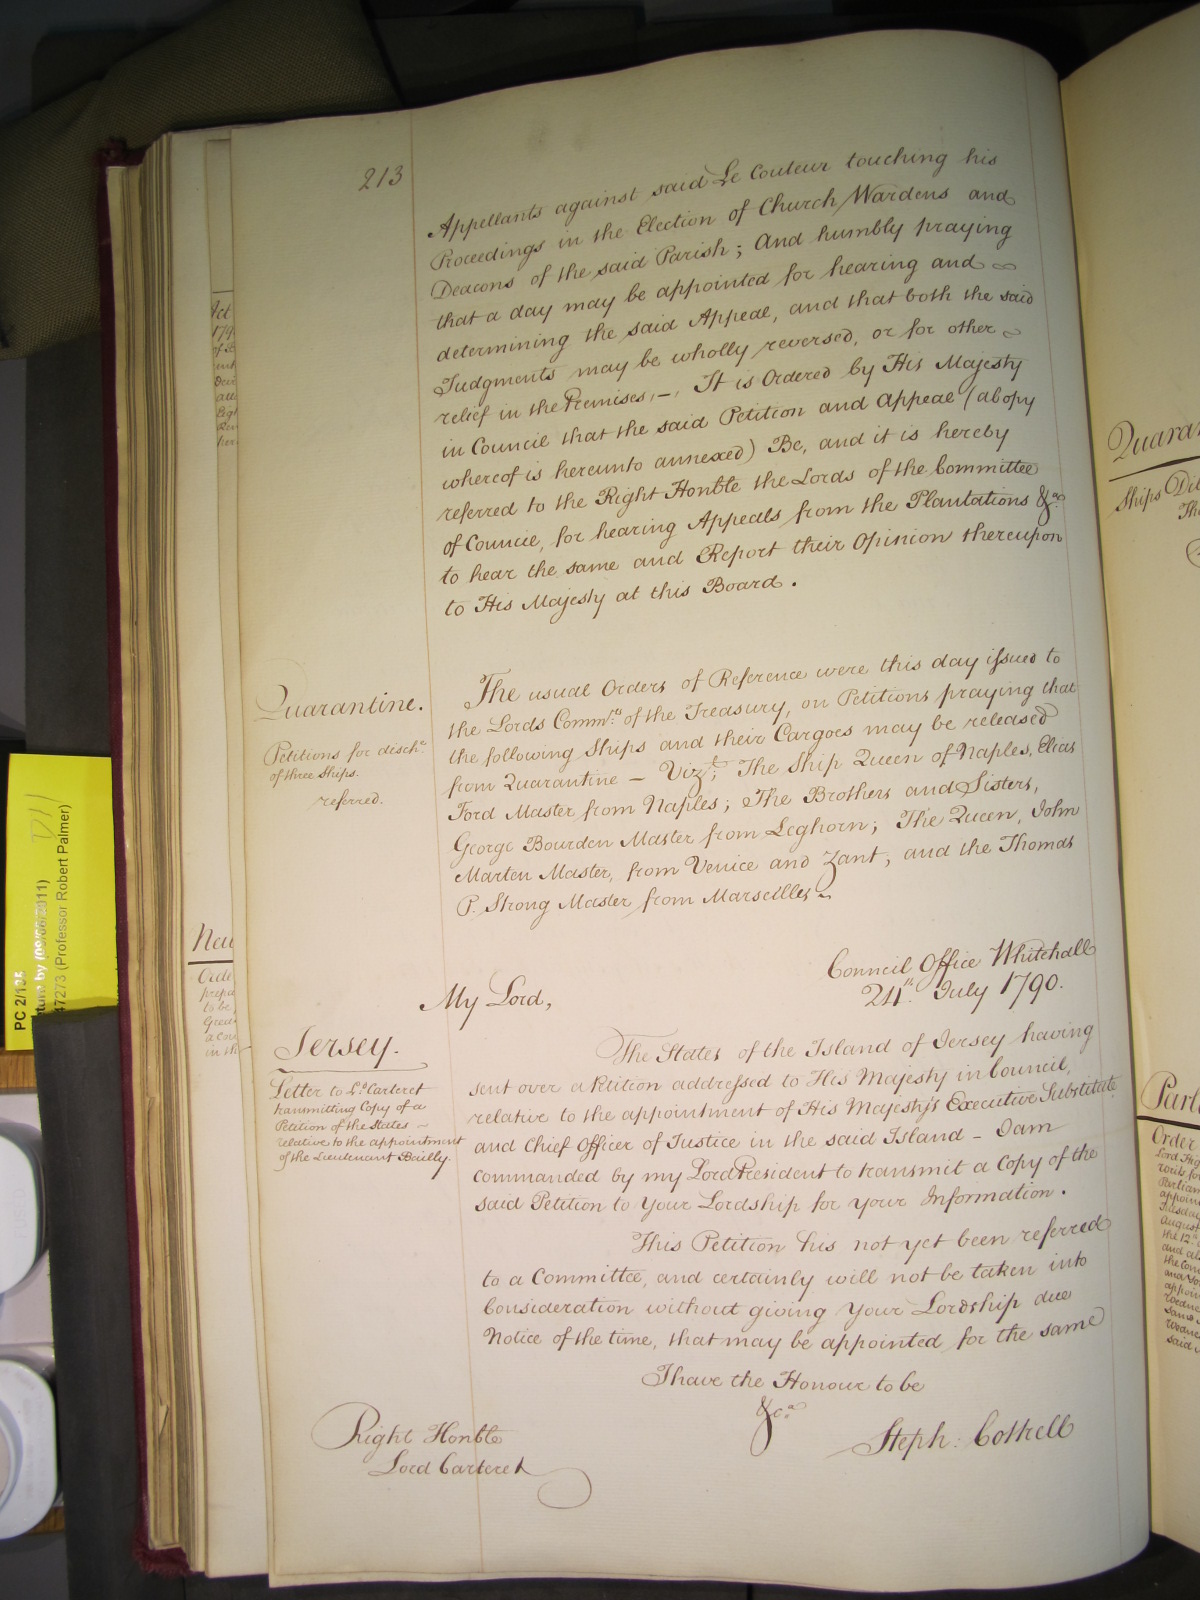 213
Appellants against said Le Couteur touching his
Proceedings in the Election of Church Wardens and
Deacons of the said Parish; And humbly praying
that a day may be appointed for hearing and
determining the said Appeal, and that both the said
Judgments may be wholly reversed, or for other
relief in the Premises,—, It is Ordered by His Majesty
in Council that the said Petition and Appeal (a Copy
whereof is hereunto annexed) Be, and it is hereby
referred to the Right Honble the Lords of the Committee
of Council, for hearing Appeals from the Plantations &ca.
to hear the same and Report their Opinion thereupon
to His Majesty at this Board.
Quarantine.
Petitions for dische.
of three Ships.
referred.
The usual Orders of Reference were this day issued to
the Lords Commrs. of the Treasury, on Petitions praying that
the following Ships and their Cargoes may be released
from Quarantine — Vizt; The Ship Queen of Naples, Elias
Ford Master from Naples; The Brothers and Sisters,
George Bourden Master from Leghorn; The Queen, John
Marten Master, from Venice and Zant; and the Thomas
P. Strong Master from Marseilles
Council Office Whitehall
24th. July 1790.
My Lord,
Jersey.
Letter to Ld. Carteret
transmitting Copy of a
Petition of the States —
relative to the appointment
of the Lieutenant Bailly.
The States of the Island of Jersey having
sent over a Petition addressed to His Majesty in Council,
relative to the appointment of His Majesty's Executive Substitute
and Chief Officer of Justice in the said Island — I am
commanded by my Lord President to transmit a Copy of the
said Petition to Your Lordship for your Information.
This Petition his not yet been referred
to a Committee, and certainly will not be taken into
Consideration without giving Your Lordship due
Notice of the time, that may be appointed for the same
I have the Honour to be
&ca.
Steph: Cottrell
Right Honble
Lord Carteret
PC 2/135
by (09/06/2011)
47273 (Professor Robert Palmer)
Ships
Order